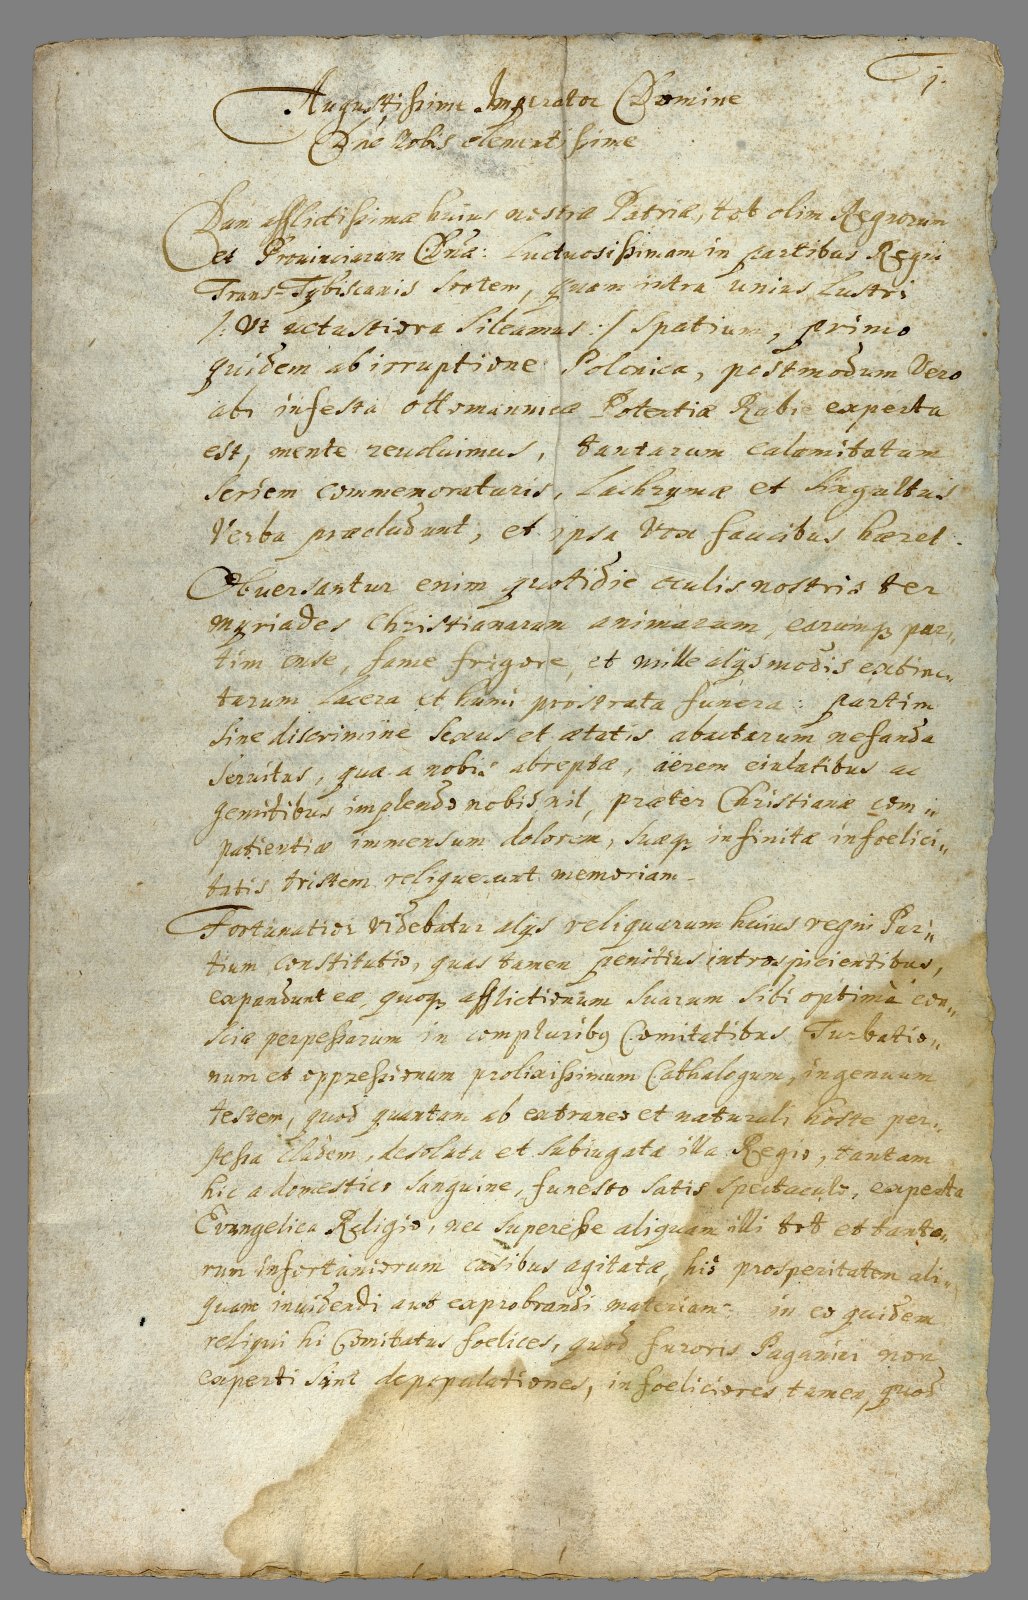 1.
Augustissime Imperator Domine
Dne nobis clementissime
Dum afflictissimæ huius nostræ Patriæ, tot olim Regnorum
et Provinciarum Dnæ: Luctuosissimam in partibus Regni
Trans-Tybiscanis Sortem, quam intra unius Lustri
/: Ut vetustiora Sileamus :/ Spatium, primo
quidem ab irruptione Polonica, postmodum Vero
ab infesta Ottomannicæ Potentiæ Rabie experta
est, mente revoluimus, tantarum calamitatum
Seriem commemoraturis, Lachrymæ et Singultus
Verba præcludunt, et ipsa Vox faucibus hæret.
Obuersantur enim quotidie oculis nostris ter
myriades Christianarum animarum, earumq; par„
tim ense, fame frigore, et mille alijs modis extinc„
tarum Lacera et humi prostrata funera: partim
Sine discrimine Sexus et ætatis abactarum nefanda
Seruitus, quæ a nobis abreptæ, äerem eiulatibus ac
gemitibus implendo nobis nil, præter Christianæ com„
patientiæ immensum dolorem, suæq; infinitæ infoelici„
tatis tristem reliquerunt memoriam.
Fortunatior videbatur alijs reliquarum huius regni Par„
tium constitutio, quas tamen penitius introspicientibus,
expandunt eæ quoq; afflictionum suarum sibi optimè con„
sciæ perpessarum in compluribq Comitatibus Turbatio„
num et oppressionum prolixissimum Cathalogum, ingenuum
testem, quod quantam ab extraneo et naturali hoste per„
pessa Cladem, desolata et subiugata illa Regio, tantam
hic a domestico sanguine, funesto satis spectaculo, experta
Evangelica Religio, nec superesse aliquam illi tot et tanto„
rum infortuniorum casibus agitatæ, his prosperitatem ali„
quam inuidendi aut exprobrandi materiam: in eo quidem
reliqui hi Comitatus foelices, quod furoris Paganici non
experti sint depopulationes, infoeliciores tamen, quod